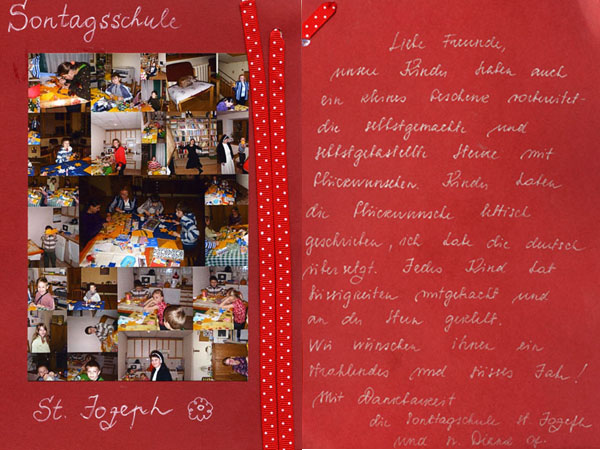 Sontagsschule
St. Jozeph
Liebe Freunde,
unsere Kinder haben auch
ein kleines Geschenk vorbereitet-
die selbstgemachte und
selbstgebastellte Sterne mit
Glückwunschen. Kinder haben
die Glückwunsche lettisch
geschrieben, ich habe die deutsch
übersetzt. Jedes Kind hat
Süssigkeiten mitgebracht und
an der Stern geklebt.
Wir wünschen Ihnen ein
strahlendes und süsses Jahr!
Mit Dankbarkeit
die Sonktagschule St. Jozeph
und